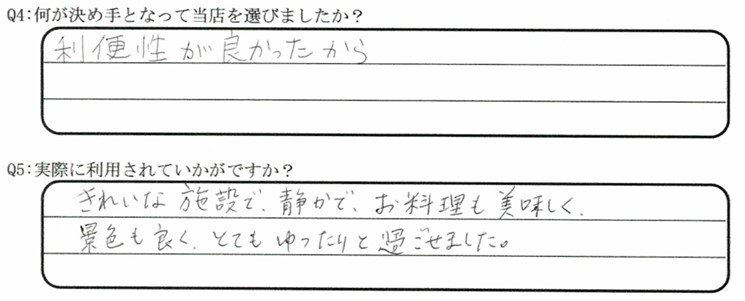 Q4:何が決め手となって当店を選びましたか？
利便性が良かったから
Q5:実際に利用されていかがですか？
きれいな施設で、静かで、お料理も美味しく、
景色も良く、とてもゆったりと過ごせました。